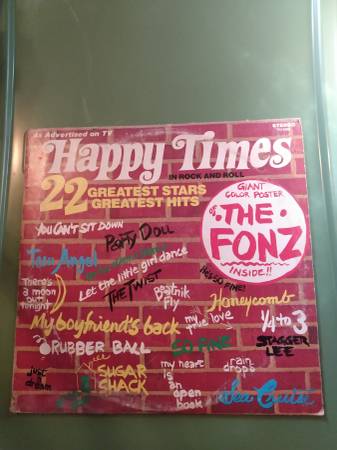 As Advertised on TV
STEREO
Happy Times
IN ROCK AND ROLL
22 GREATEST STARS
GREATEST HITS
GIANT
COLOR POSTER
of
•THE•
FONZ
INSIDE!!
YOU CAN'T SIT DOWN
Party DOLL
Teen Angel
Let the little girl dance
He's SO FINE!
There's
a moon
out
tonight
THE TWIST
Beatnik
Fly
Honeycomb
My boyfriend's back
my
true love
1/4 to 3
STAGGER
LEE
RUBBER BALL
SO FINE
SUGAR
SHACK
my heart
is
an
open
book
rain
drops
just
a
dream
Sea Cruise